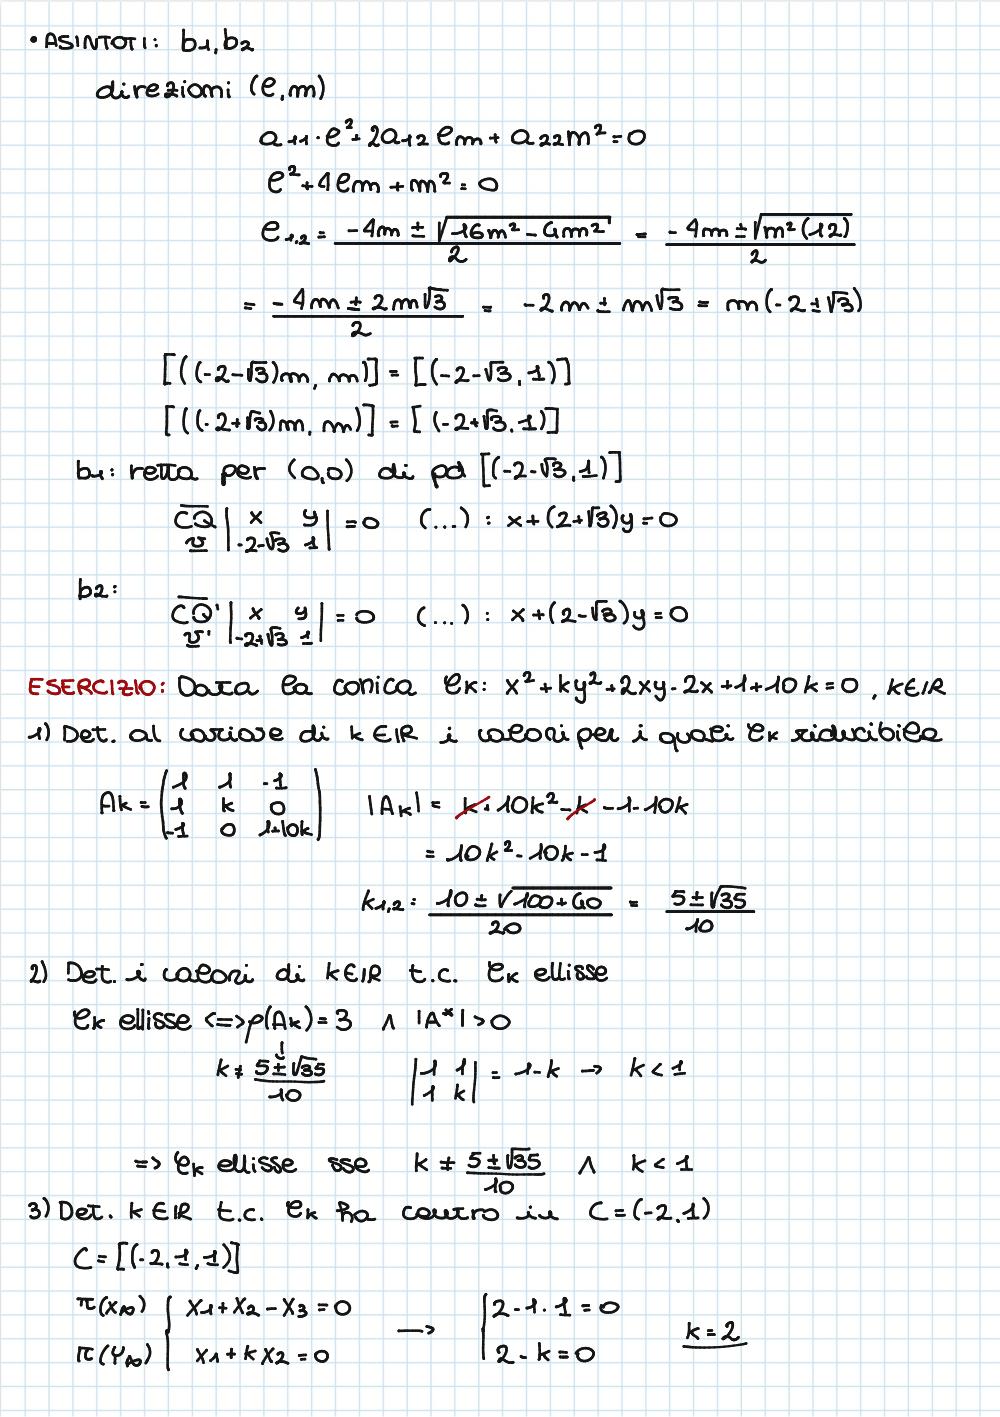 • ASINTOTI: b1, b2
direzioni (l, m)
a11·l²+2a12 lm + a22m² = 0
l²+4lm+m² = 0
l1,2 = (-4m ± √16m²-4m²)/2 = (-4m ± √m²(12))/2
= (-4m ± 2m√3)/2 = -2m ± m√3 = m(-2±√3)
[((-2-√3)m, m)] = [(-2-√3, 1)]
[((-2+√3)m, m)] = [(-2+√3, 1)]
b1: retta per (0,0) di pd [(-2-√3, 1)]
CQ | x y | = 0 (...) : x+(2+√3)y = 0
v | -2-√3 1 |
b2:
CQ' | x y | = 0 (...) : x+(2-√3)y = 0
v' | -2+√3 1 |
ESERCIZIO: Data la conica ℓk: x²+ky²+2xy-2x+1+10k = 0, k∈IR
1) Det. al variare di k∈IR i valori per i quali ℓk riducibile
Ak = ( 1 1 -1 ; 1 k 0 ; -1 0 1+10k ) |Ak| = k+10k²-k-1-10k
= 10k²-10k-1
k1,2: (10 ± √100+40)/20 = (5±√35)/10
2) Det. i valori di k∈IR t.c. ℓk ellisse
ℓk ellisse <=> ρ(Ak) = 3 ∧ |A*| > 0
↓
k ≠ (5±√35)/10 | 1 1 ; 1 k | = 1-k → k < 1
=> ℓk ellisse sse k ≠ (5±√35)/10 ∧ k < 1
3) Det. k∈IR t.c. ℓk ha centro in C = (-2, 1)
C = [(-2, 1, 1)]
π(X∞) { X1+X2-X3 = 0 → { 2-1-1 = 0
π(Y∞) { X1+kX2 = 0 { 2-k = 0 k = 2